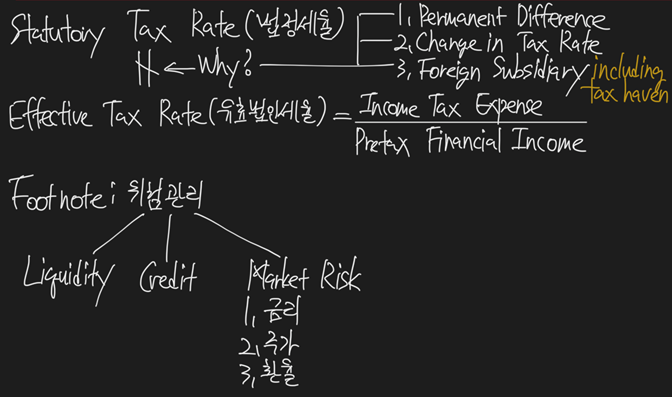 Statutory Tax Rate (법정세율)
1, Permanent Difference
2, Change in Tax Rate
3, Foreign Subsidiary including tax haven
≠ ← Why?
Effective Tax Rate (유효법인세율) = Income Tax Expense
Pretax Financial Income
Footnote: 위험관리
Liquidity Credit Market Risk
1, 금리
2, 주가
3, 환율